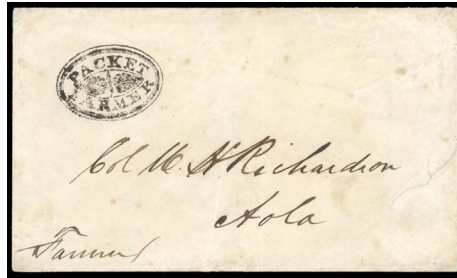 PACKET
FARMER
Col W. H Richardson
Aola
Farmer